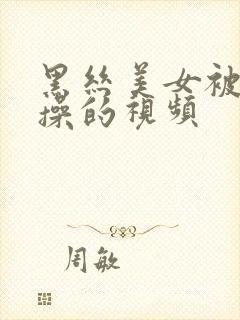 黑丝美女被
操的視頻
周敏